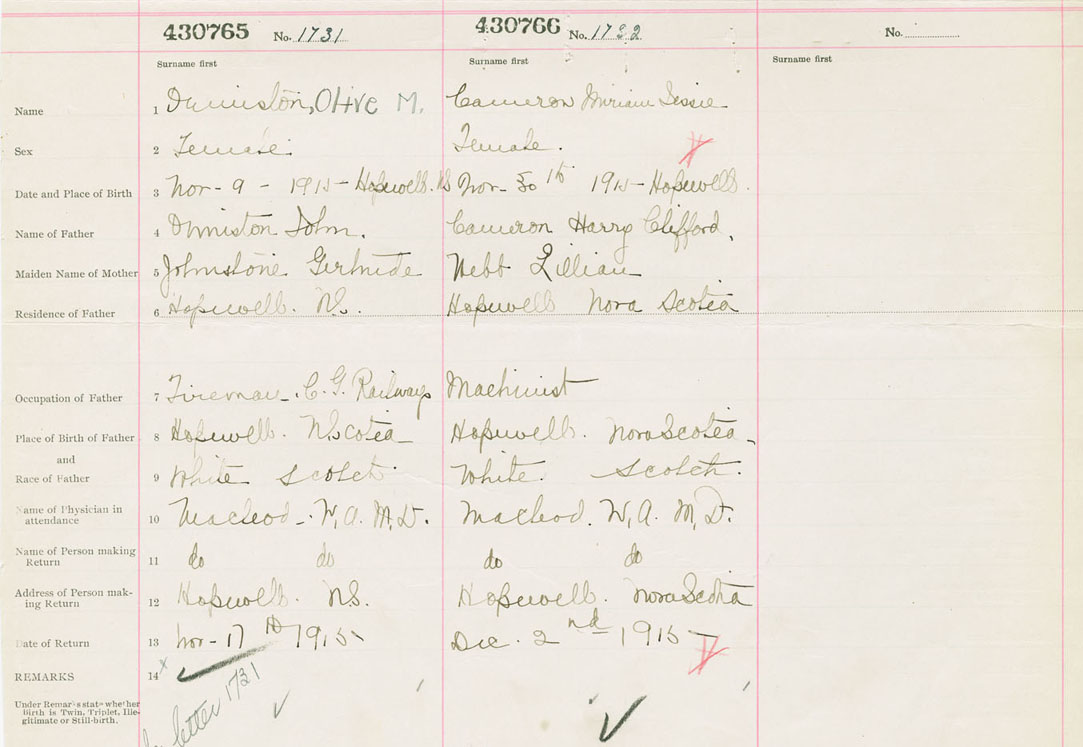 430765 No. 1731 430766 No. 1732 No.
Surname first Surname first Surname first
Name 1 Dunniston, Olive M. Cameron Miriam Jessie
Sex 2 Female. Female.
Date and Place of Birth 3 Nov - 9 - 1915 - Hopewell. NS Nov - 30th 1915 - Hopewell.
Name of Father 4 Dunniston John. Cameron Harry Clifford.
Maiden Name of Mother 5 Johnstone Gertrude Webb Lillian
Residence of Father 6 Hopewell. N.S. Hopewell Nova Scotia
Occupation of Father 7 Fireman - C. G. Railways Machinist
Place of Birth of Father 8 Hopewell. N. Scotia Hopewell. Nova Scotia
and
Race of Father 9 White Scotch White. Scotch.
Name of Physician in
attendance 10 Macleod - W. A. M. D. Macleod. W. A. M. D.
Name of Person making
Return 11 do do do do
Address of Person mak-
ing Return 12 Hopewell. N.S. Hopewell. Nova Scotia
Date of Return 13 Nov - 17th 1915 - Dec. 2nd 1915 -
REMARKS 14 x
letter 1731
Under Remarks state whether
Birth is Twin, Triplet, Ille-
gitimate or Still-birth.